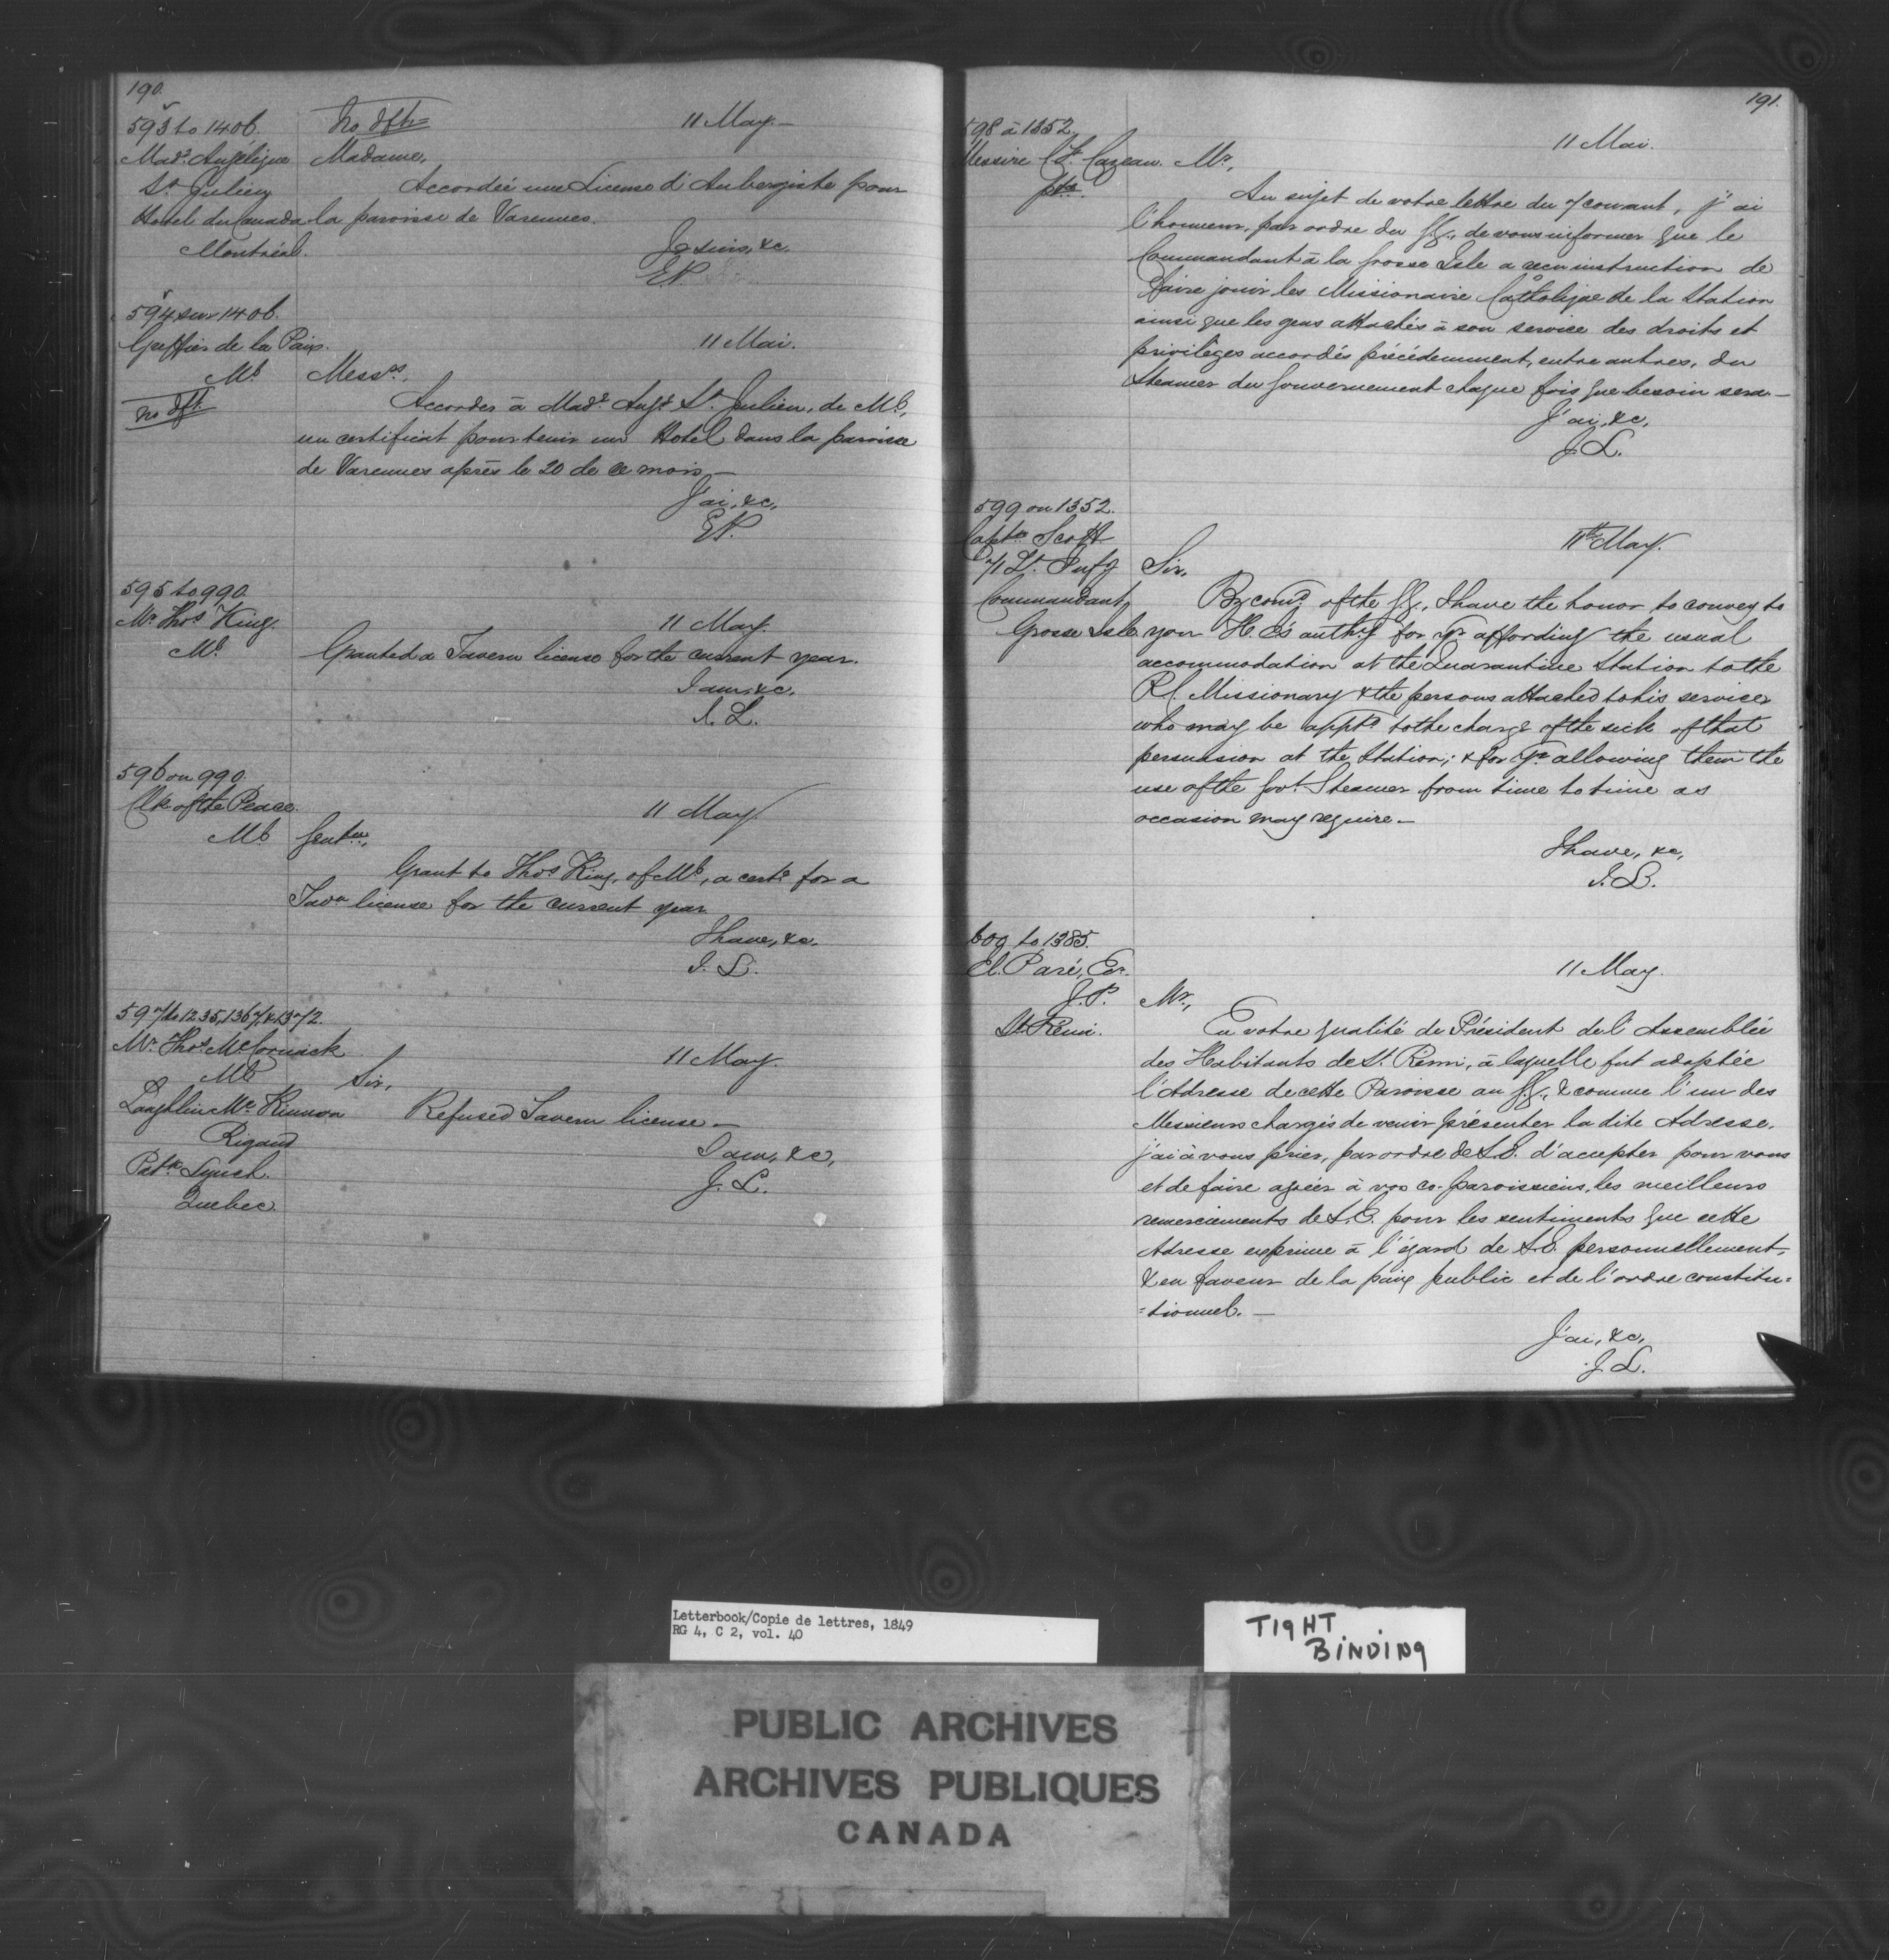 190.
593 to 1406.
No dft
11 May.—
Made. Angélique
St. Julien
Hotel du Canada
Montréal.
Madame,
Accordée une License d'Aubergiste pour
la paroisse de Varennes.
Je suis, &c.
594 sur 1406.
Greffier de la Paix.
Ml.
no dft.
11 Mai.
Messrs,
Accorder à Made. Angé. St. Julien, de Ml.,
un certificat pour tenir un Hotel dans la paroisse
de Varennes après le 20 de ce mois,—
J'ai, &c.
595 to 990.
Mr. Thos. King.
Ml.
11 May.
Granted a Tavern license for the current year.
I am, &c.
J. L.
596 on 990.
Clk of the Peace.
Ml.
11 May.
Gentn.,
Grant to Thos. King, of Ml., a certe. for a
Tavn license for the current year.
I have, &c.
J. L.
597 to 1235, 1367, & 1372.
Mr. Thos. McCormick
Ml.
Laughlin McKinnon
Rigaud
Patk. Lynch.
Quebec.
11 May.
Sir,
Refused Tavern license—
I am, &c,
J. L.
191.
598 à 1352.
Messire Cazeau.
ptre.
11 Mai.
Mr.,
Au sujet de votre lettre du 7 courant, j'ai
l'honneur, par ordre du G.G., de vous informer que le
Commandant à la Grosse Isle a reçu instruction de
faire jouir les Missionaire Catholique de la Station
ainsi que les gens attachés à son service des droits et
privilèges accordés précédemment, entre autres, du
Steamer du Gouvernement chaque fois que besoin sera—
J'ai, &c,
J. L.
599 on 1352.
Captn. Scott
71 Lt. Infy
Commandant,
Grosse Isle
11th May.
Sir,
By comd. of the G.G., I have the honor to convey to
your H. E's authy for yr affording the usual
accommodation at the Quarantine Station to the
R.C. Missionary & the persons attached to his service
who may be apptd to the charge of the sick of that
persuasion at the Station; & for yr allowing them the
use of the Govt. Steamer from time to time as
occasion may require—
I have, &c,
J. L.
600 to 1385.
El. Paré, Er.
J.P.
St. Remi.
11 May.
Mr.,
En votre qualité de Président de l'Assemblée
des Habitants de St. Remi, à laquelle fut adoptée
l'Adresse de cette Paroisse au G.G., & comme l'un des
Messieurs chargés de venir présenter la dite Adresse,
j'ai à vous prier, par ordre de S.E. d'accepter pour vous
et de faire agréer à vos co-paroissiens, les meilleurs
remerciements de S.E. pour les sentiments que cette
Adresse exprime à l'égard de S.E. personnellement,
& en faveur de la paix public et de l'ordre constitu=
=tionnel.—
J'ai, &c,
J. L.
Letterbook/Copie de lettres, 1849
RG 4, C 2, vol. 40
TIGHT
BINDING
PUBLIC ARCHIVES
ARCHIVES PUBLIQUES
CANADA